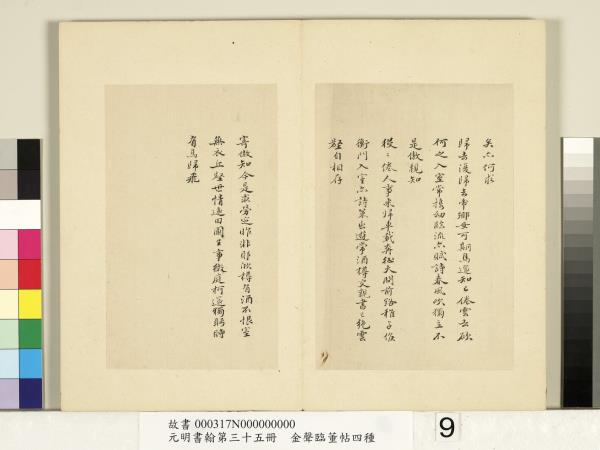 矣亦何求
歸去復歸去帝鄉安可期鳥還知已倦雲去欲
何之入室常携幼臨流亦賦詩春風吹獨立不
是傲親知
役役倦人事來歸車載奔征夫問前路稚子候
衡門入室亦詩策出遊常酒樽交親書已絕雲
壑自相存
寄傲知今是求勞定昨非聊欣樽有酒不恨室
無衣丘壑世情遠田園生事微庭柯還獨眄時
有鳥歸飛
故書 000317N000000000
元明書翰第三十五冊 金聲臨董帖四種
9